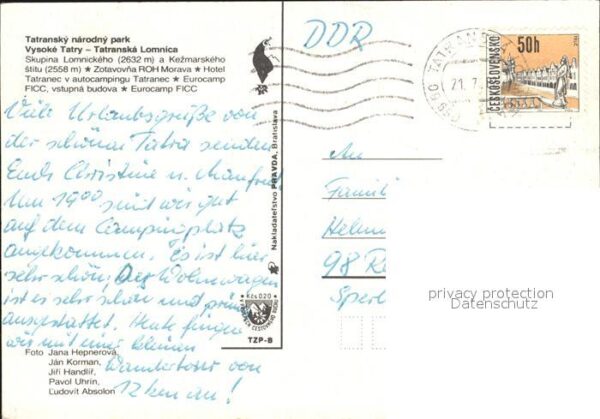 Tatranský národný park
Vysoké Tatry – Tatranská Lomnica
Skupina Lomnického (2632 m) a Kežmarského
štítu (2558 m) ★ Zotavovňa ROH Morava ★ Hotel
Tatranec v autocampingu Tatranec ★ Eurocamp
FICC, vstupná budova ★ Eurocamp FICC
Viele Urlaubsgrüße von
der schönen Tatra senden
Euch Christine u. Manfred.
Um 19⁰⁰ sind wir gut
auf dem Campingplatz
angekommen. Es ist hier
sehr schön. Der Wohnwagen
ist es sehr schön und prima
ausgestattet. Heute fingen
wir mit einer kleinen
Wandertour von
12 km an!
Foto Jana Hepnerová,
Ján Korman,
Jiří Handlíř,
Pavol Uhrin,
Ľudovít Absolon
Nakladateľstvo PRAVDA, Bratislava
Kčs 020
TZP-B
DDR
TATRAN
21.7.
ČESKOSLOVENSKO
50h
TELČ
An
Famil
Helm
98 R
Sperl
privacy protection
Datenschutz